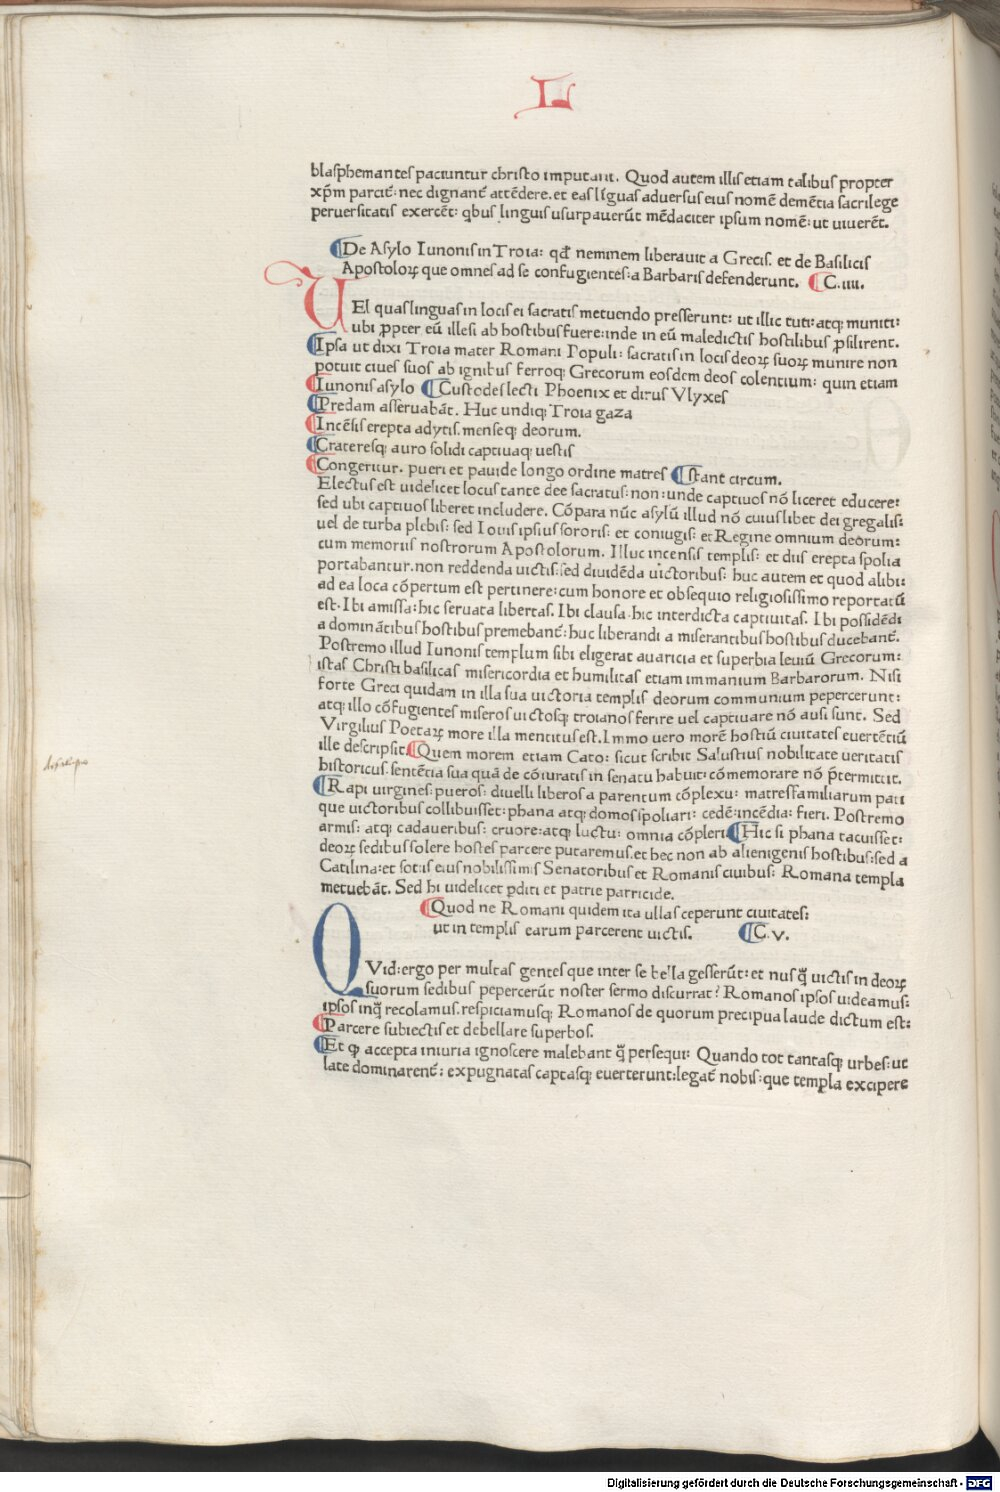 L
blasphemantes paciuntur christo imputant. Quod autem illis etiam talibus propter
xp̄m parcit̄: nec dignant̄ attēdere. et eas līguas adversus eius nomē demētia sacrilege
perversitatis exercēt: qbus linguis usurpaverūt mēdaciter ipsum nomē: ut viverēt.
De Asylo Iunonis in Troia: qđ neminem liberavit a Grecis. et de Basilicis
Apostoloꝝ que omnes ad se confugientes: a Barbaris defenderunt. C. iiii.
VEl quas linguas in locis ei sacratis metuendo presserunt: ut illic tuti: atqꝫ muniti:
ubi ꝓpter eū illesi ab hostibus fuere: inde in eū maledictis hostilibus ꝓsilirent.
Ipsa ut dixi Troia mater Romani Populi: sacratis in locis deoꝝ suoꝝ munire non
potuit cives suos ab ignibus ferroqꝫ Grecorum eosdem deos colentium: quin etiam
Iunonis asylo Custodes lecti Phoenix et dirus Vlyxes
Predam asservabāt. Huc undiqꝫ Troia gaza
Incēsis erepta adytis. menseqꝫ deorum.
Crateresqꝫ auro solidi captivaqꝫ vestis
Congeritur. pueri et pavide longo ordine matres stant circum.
Electus est videlicet locus tante dee sacratus: non: unde captivos nō liceret educere:
sed ubi captivos liberet includere. Cōpara nūc asylū illud nō cuius libet dei gregalis:
vel de turba plebis: sed Iovis ipsius sororis: et coniugis: et Regine omnium deorum:
cum memoriis nostrorum Apostolorum. Illuc incensis templis: et diis erepta spolia
portabantur. non reddenda victis: sed dividēda victoribus: huc autem et quod alibi:
ad ea loca cōpertum est pertinere: cum honore et obsequio religiosissimo reportatū
est. Ibi amissa: hic servata libertas. Ibi clausa. hic interdicta captivitas. Ibi possidēdi
a domināntibus hostibus premebant̄: huc liberandi a miserantibus hostibus ducebant̄.
Postremo illud Iunonis templum sibi eligerat avaricia et superbia leviū Grecorum:
istas Christi basilicas misericordia et humilitas etiam immanium Barbarorum. Nisi
forte Greci quidam in illa sua victoria templis deorum communium pepercerunt:
atqꝫ illo cōfugientes miseros victosqꝫ troianos ferire vel captivare nō ausi sunt. Sed
Virgilius Poetaꝝ more illa mentitus est. Immo vero morē hostiū civitates evertētiū
ille descripsit. Quem morem etiam Cato: sicut scribit Salustius nobilitate veritatis
historicus. sentētia sua quā de cōiuratis in senatu habuit: cōmemorare nō p̄termittit.
Rapi virgines: pueros: divelli liberos a parentum cōplexu: matresfamiliarum pati
que victoribus collibuisset: phana atqꝫ domos spoliari: cedē: incēdia: fieri. Postremo
armis: atqꝫ cadaveribus: cruore: atqꝫ luctu: omnia cōpleri Hic si phana tacuisset:
deoꝝ sedibus solere hostes parcere putaremus. et hec non ab alienigenis hostibus: sed a
Catilina: et sotiis eius nobilissimis Senatoribus et Romanis civibus: Romana templa
metuebāt. Sed hi videlicet ꝑditi et patrie parricide.
Quod ne Romani quidem ita ullas ceperunt civitates:
ut in templis earum parcerent victis. C. v.
QVid: ergo per multas gentes que inter se bella gesserūt: et nusq̄ victis in deoꝝ
suorum sedibus pepercerūt noster sermo discurrat? Romanos ipsos videamus:
ipsos inq̄ recolamus. respiciamusqꝫ Romanos de quorum precipua laude dictum est:
Parcere subiectis et debellare superbos.
Et qꝫ accepta iniuria ignoscere malebant q̄ persequi: Quando tot tantasqꝫ urbes: ut
late dominarent̄: expugnatas captasqꝫ everterunt: legat̄ nobis: que templa excipere
Digitalisierung gefördert durch die Deutsche Forschungsgemeinschaft - DFG